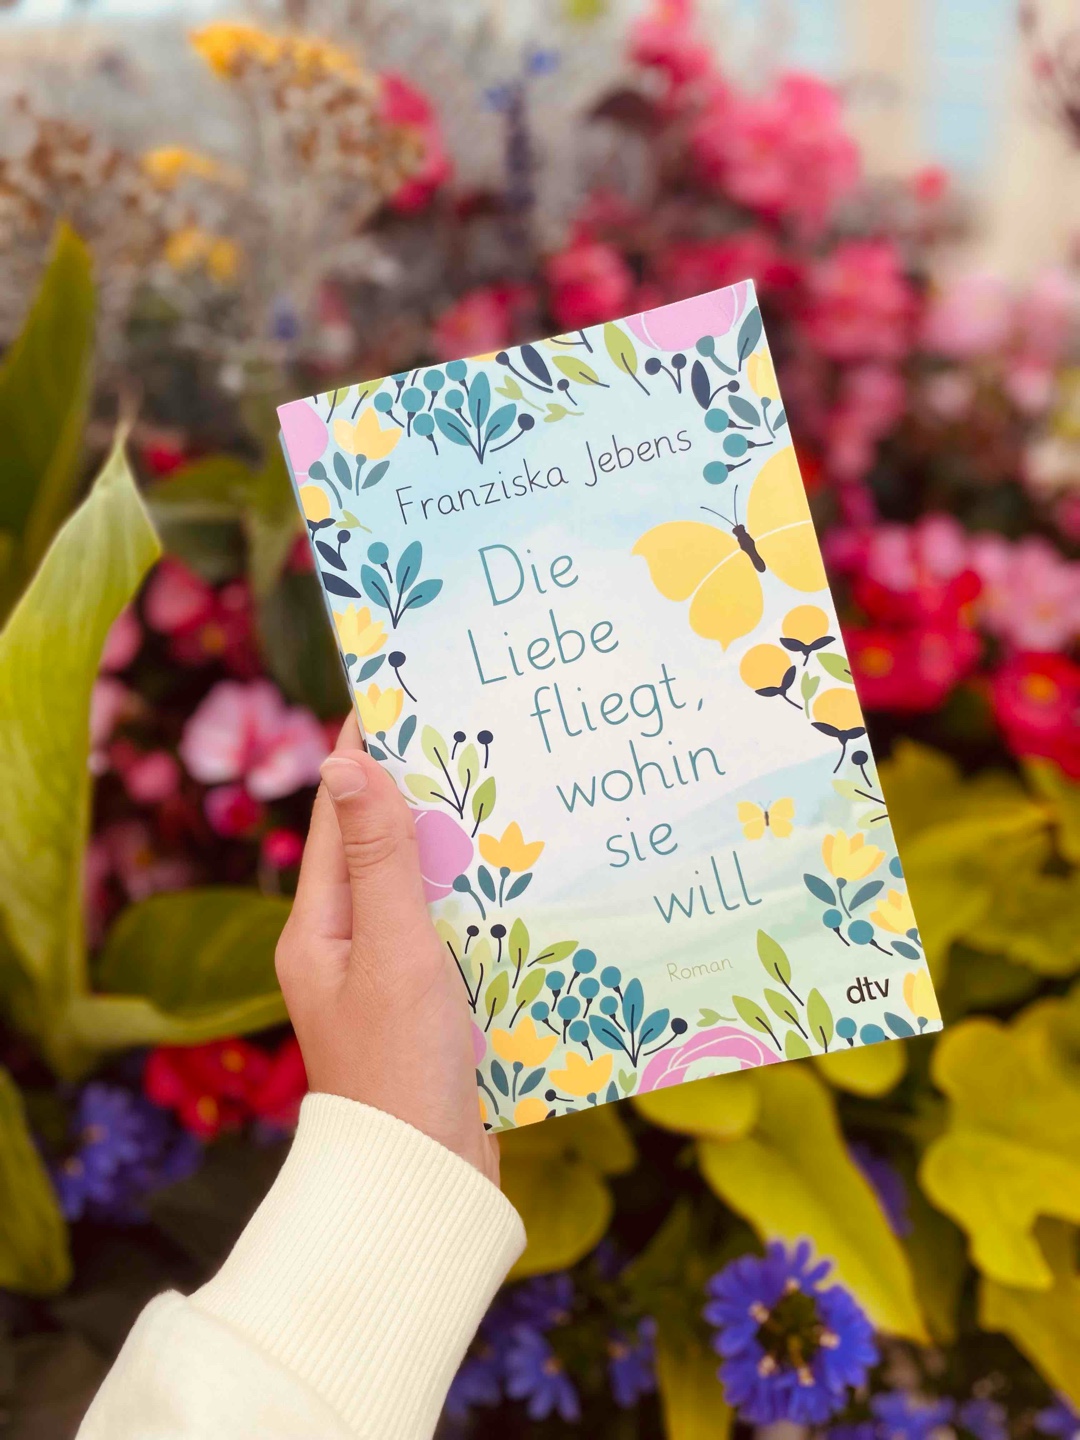 Franziska Jebens
Die
Liebe
fliegt,
wohin
sie
will
Roman
dtv